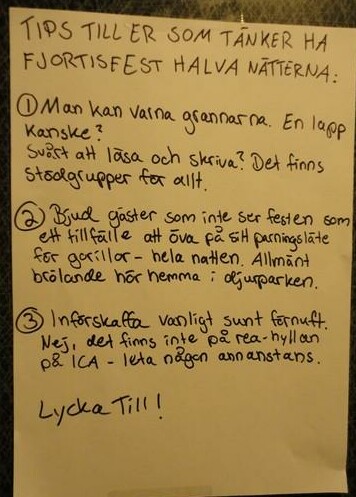 TIPS TILL ER SOM TÄNKER HA
FJORTISFEST HALVA NÄTTERNA:
① Man kan varna grannarna. En lapp
kanske?
Svårt att läsa och skriva? Det finns
stödgrupper för allt.
② Bjud gäster som inte ser festen som
ett tillfälle att öva på sitt parningsläte
för gorillor - hela natten. Allmänt
brölande hör hemma i djurparken.
③ Införskaffa vanligt sunt förnuft.
Nej, det finns inte på rea-hyllan
på ICA - leta någon annanstans.
Lycka Till!